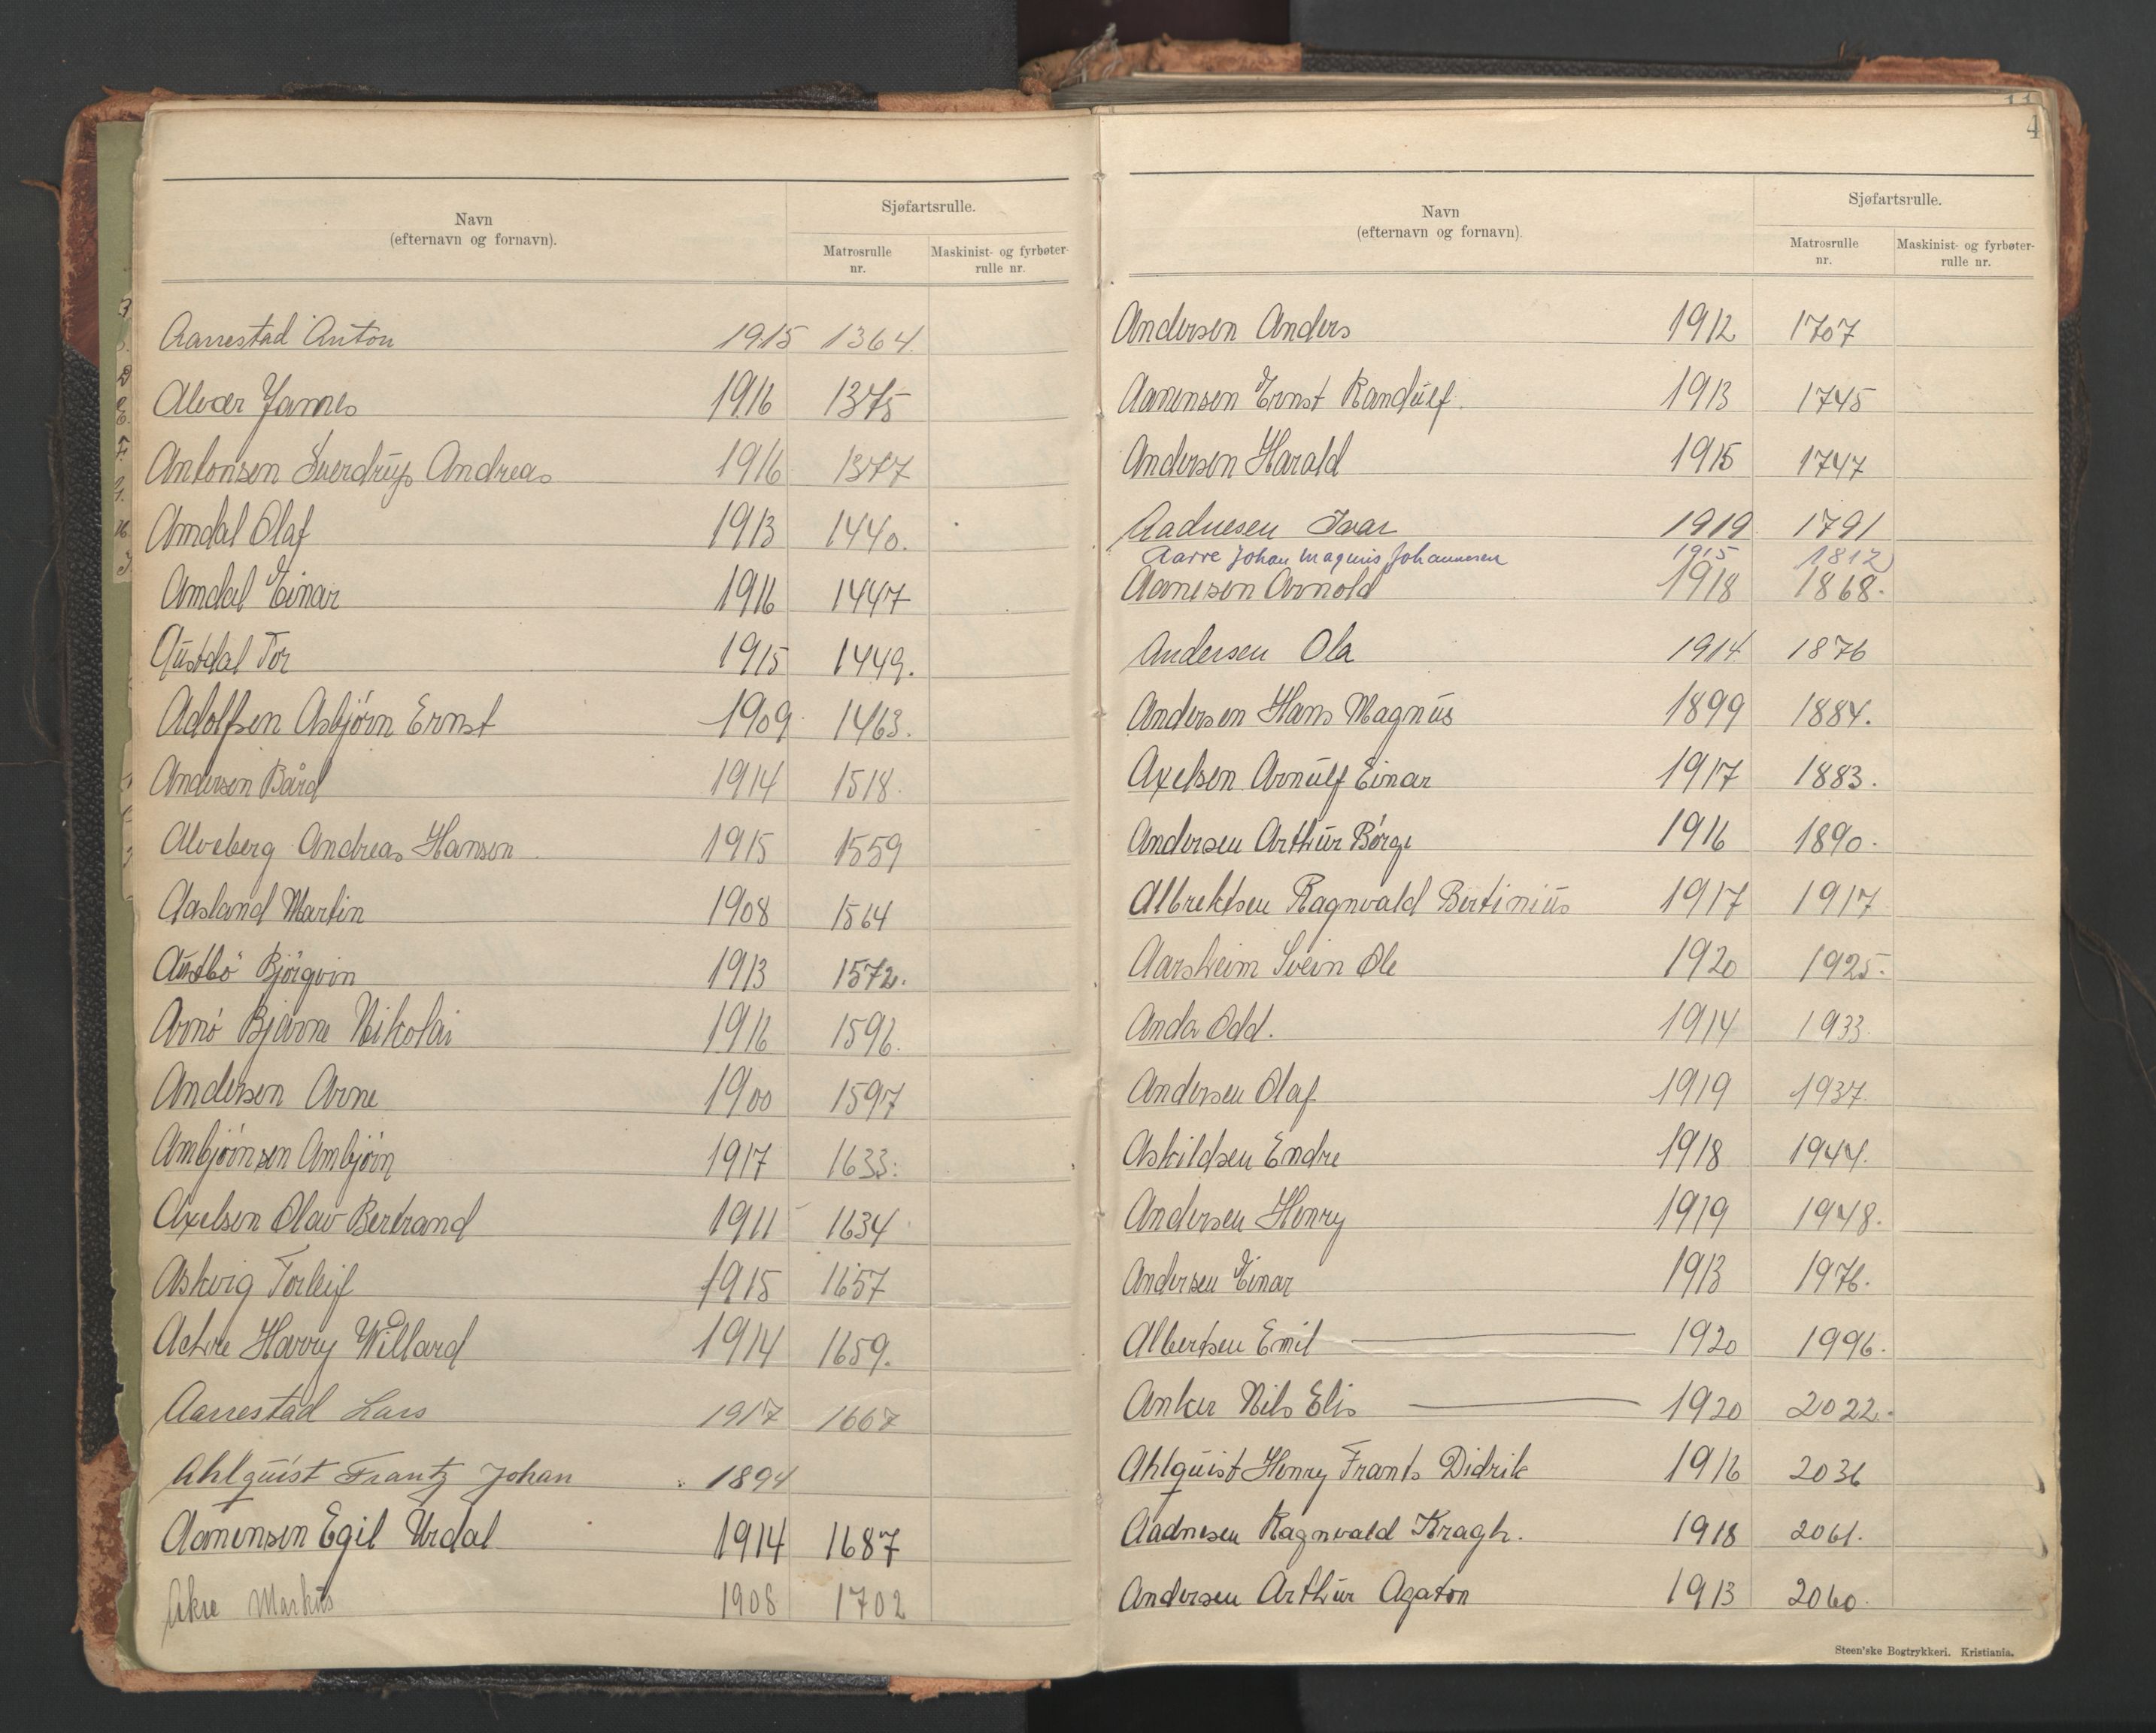 Navn
(efternavn og fornavn).
Sjøfartsrulle.
Matrosrulle nr.
Maskinist- og fyrbøter-rulle nr.
Aarrestad Anton 1915 1364.
Alvær James 1916 1375
Antonsen Sverdrup Andreas 1916 1377
Amdal Olaf 1913 1440.
Amdal Einar 1916 1447
Austdal Tor 1915 1449.
Adolfsen Asbjörn Ernst 1909 1463.
Andersen Bård 1914 1518.
Alveberg Andreas Hansen 1915 1559
Aasland Martin 1908 1564
Austbö Björgvin 1913 1572.
Arnö Bjarne Nikolai 1916 1596.
Andersen Arne 1900 1597
Ambjörnsen Ambjörn 1917 1633.
Axelsen Olav Bertrand 1911 1634
Askvig Torleif 1915 1657
Harry Willard 1914 1659.
Aarrestad Lars 1917 1667
Ahlquist Frantz Johan 1894
Aanensen Egil Urdal 1914 1687
Akre Markus 1908 1702
4
Navn
(efternavn og fornavn).
Sjøfartsrulle.
Matrosrulle nr.
Maskinist- og fyrbøter-rulle nr.
Andersen Anders 1912 1707
Aanensen Ernst Randulf. 1913 1745
Andersen Harald 1915 1747
Aadnesen Ivar 1919 1791
Aarre Johan Magnus Johannesen 1915 1812
Aanesen Arnold 1918 1868.
Andersen Ola 1914 1876
Andersen Hans Magnus 1899 1884.
Axelsen Arnulf Einar 1917 1883.
Andersen Arthur Börge 1916 1890.
Albrektsen Ragnvald Bertinius 1917 1917
Aarsheim Svein Ole 1920 1925.
Anda Odd. 1914 1933.
Andersen Olaf 1919 1937.
Askildsen Endre 1918 1944.
Andersen Henry 1919 1948.
Andersen Einar 1913 1976.
Albertsen Emil 1920 1996.
Anker Nils Elis 1920 2022.
Ahlquist Henry Frants Didrik 1916 2036
Aadnesen Ragnvald Kragh. 1918 2061.
Andersen Arthur Agaton 1913 2060.
Steen'ske Bogtrykkeri. Kristiania.